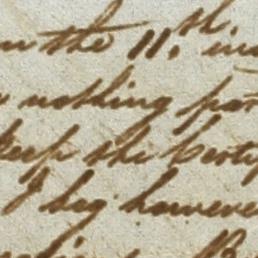 the 11th in
nothing par
keep the Certi
I beg however